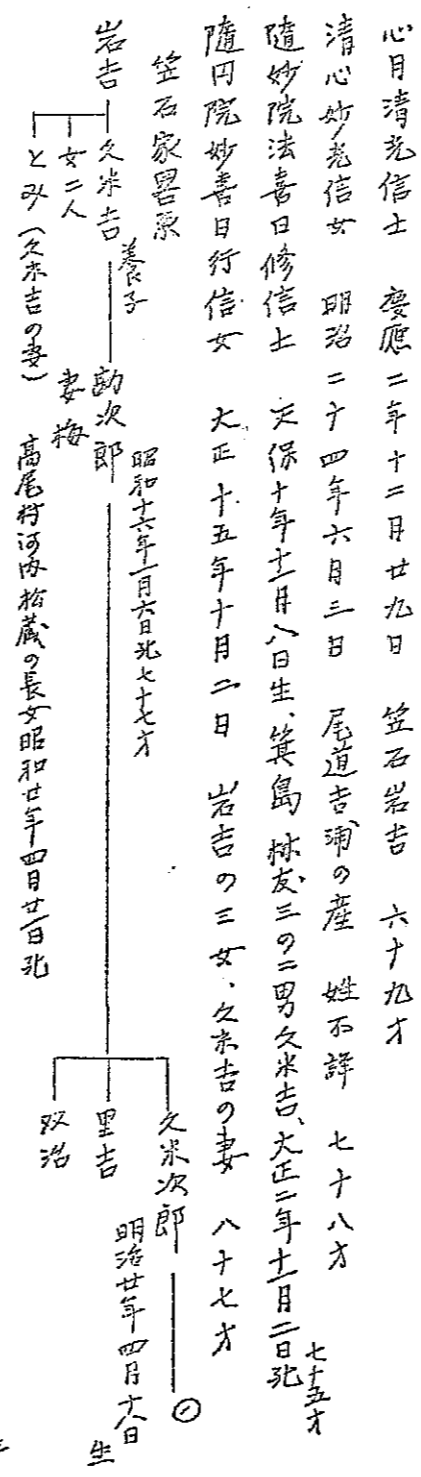 心月清光信士　慶應二年十二月廿九日　笠石岩吉　六十九才
清心妙光信女　明治二十四年六月三日　尾道吉浦の産　姓不詳　七十八才
隨妙院法喜日修信士　天保十年十一月八日生、箕島　林友三の二男久米吉、大正二年十一月二日死　七十五才
隨円院妙喜日行信女　大正十五年十月二日　岩吉の三女、久米吉の妻　八十七才
笠石家畧系
岩吉
久米吉　養子
女二人
とみ（久米吉の妻）
勘次郎　昭和十六年一月六日死七十七才
妻梅　高尾村河内松蔵の長女昭和廿年四月廿一日死
久米次郎　明治廿年四月十八日生
里吉
双治